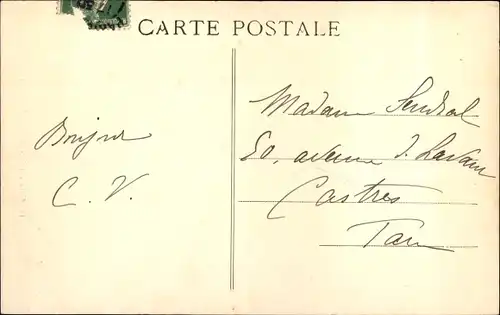 CARTE POSTALE
Bonjour
C. V.
Madame Sendral
50, avenue
Castres
Tarn